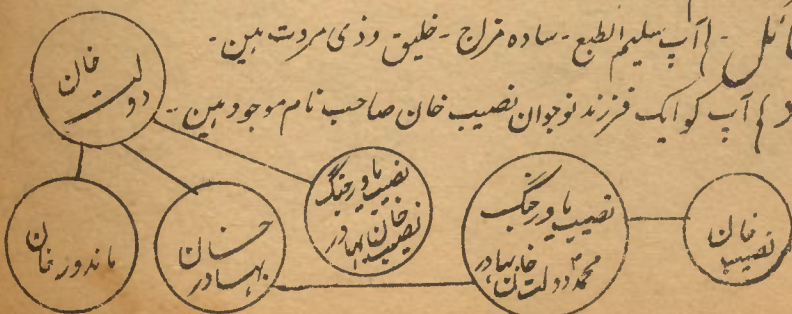 ائل - آپ سلیم الطبع - سادہ مزاج - خلیق و ذی مروت ہین -
د آپ کو ایک فرزند نوجوان نصیب خان صاحب نام موجود ہین -
دولت خان
ماندور خان
حسان بہادر
نصیب یاور جنگ نصیب خان بہادر
نصیب یاور جنگ محمد دولت خان بہادر
نصیب خان